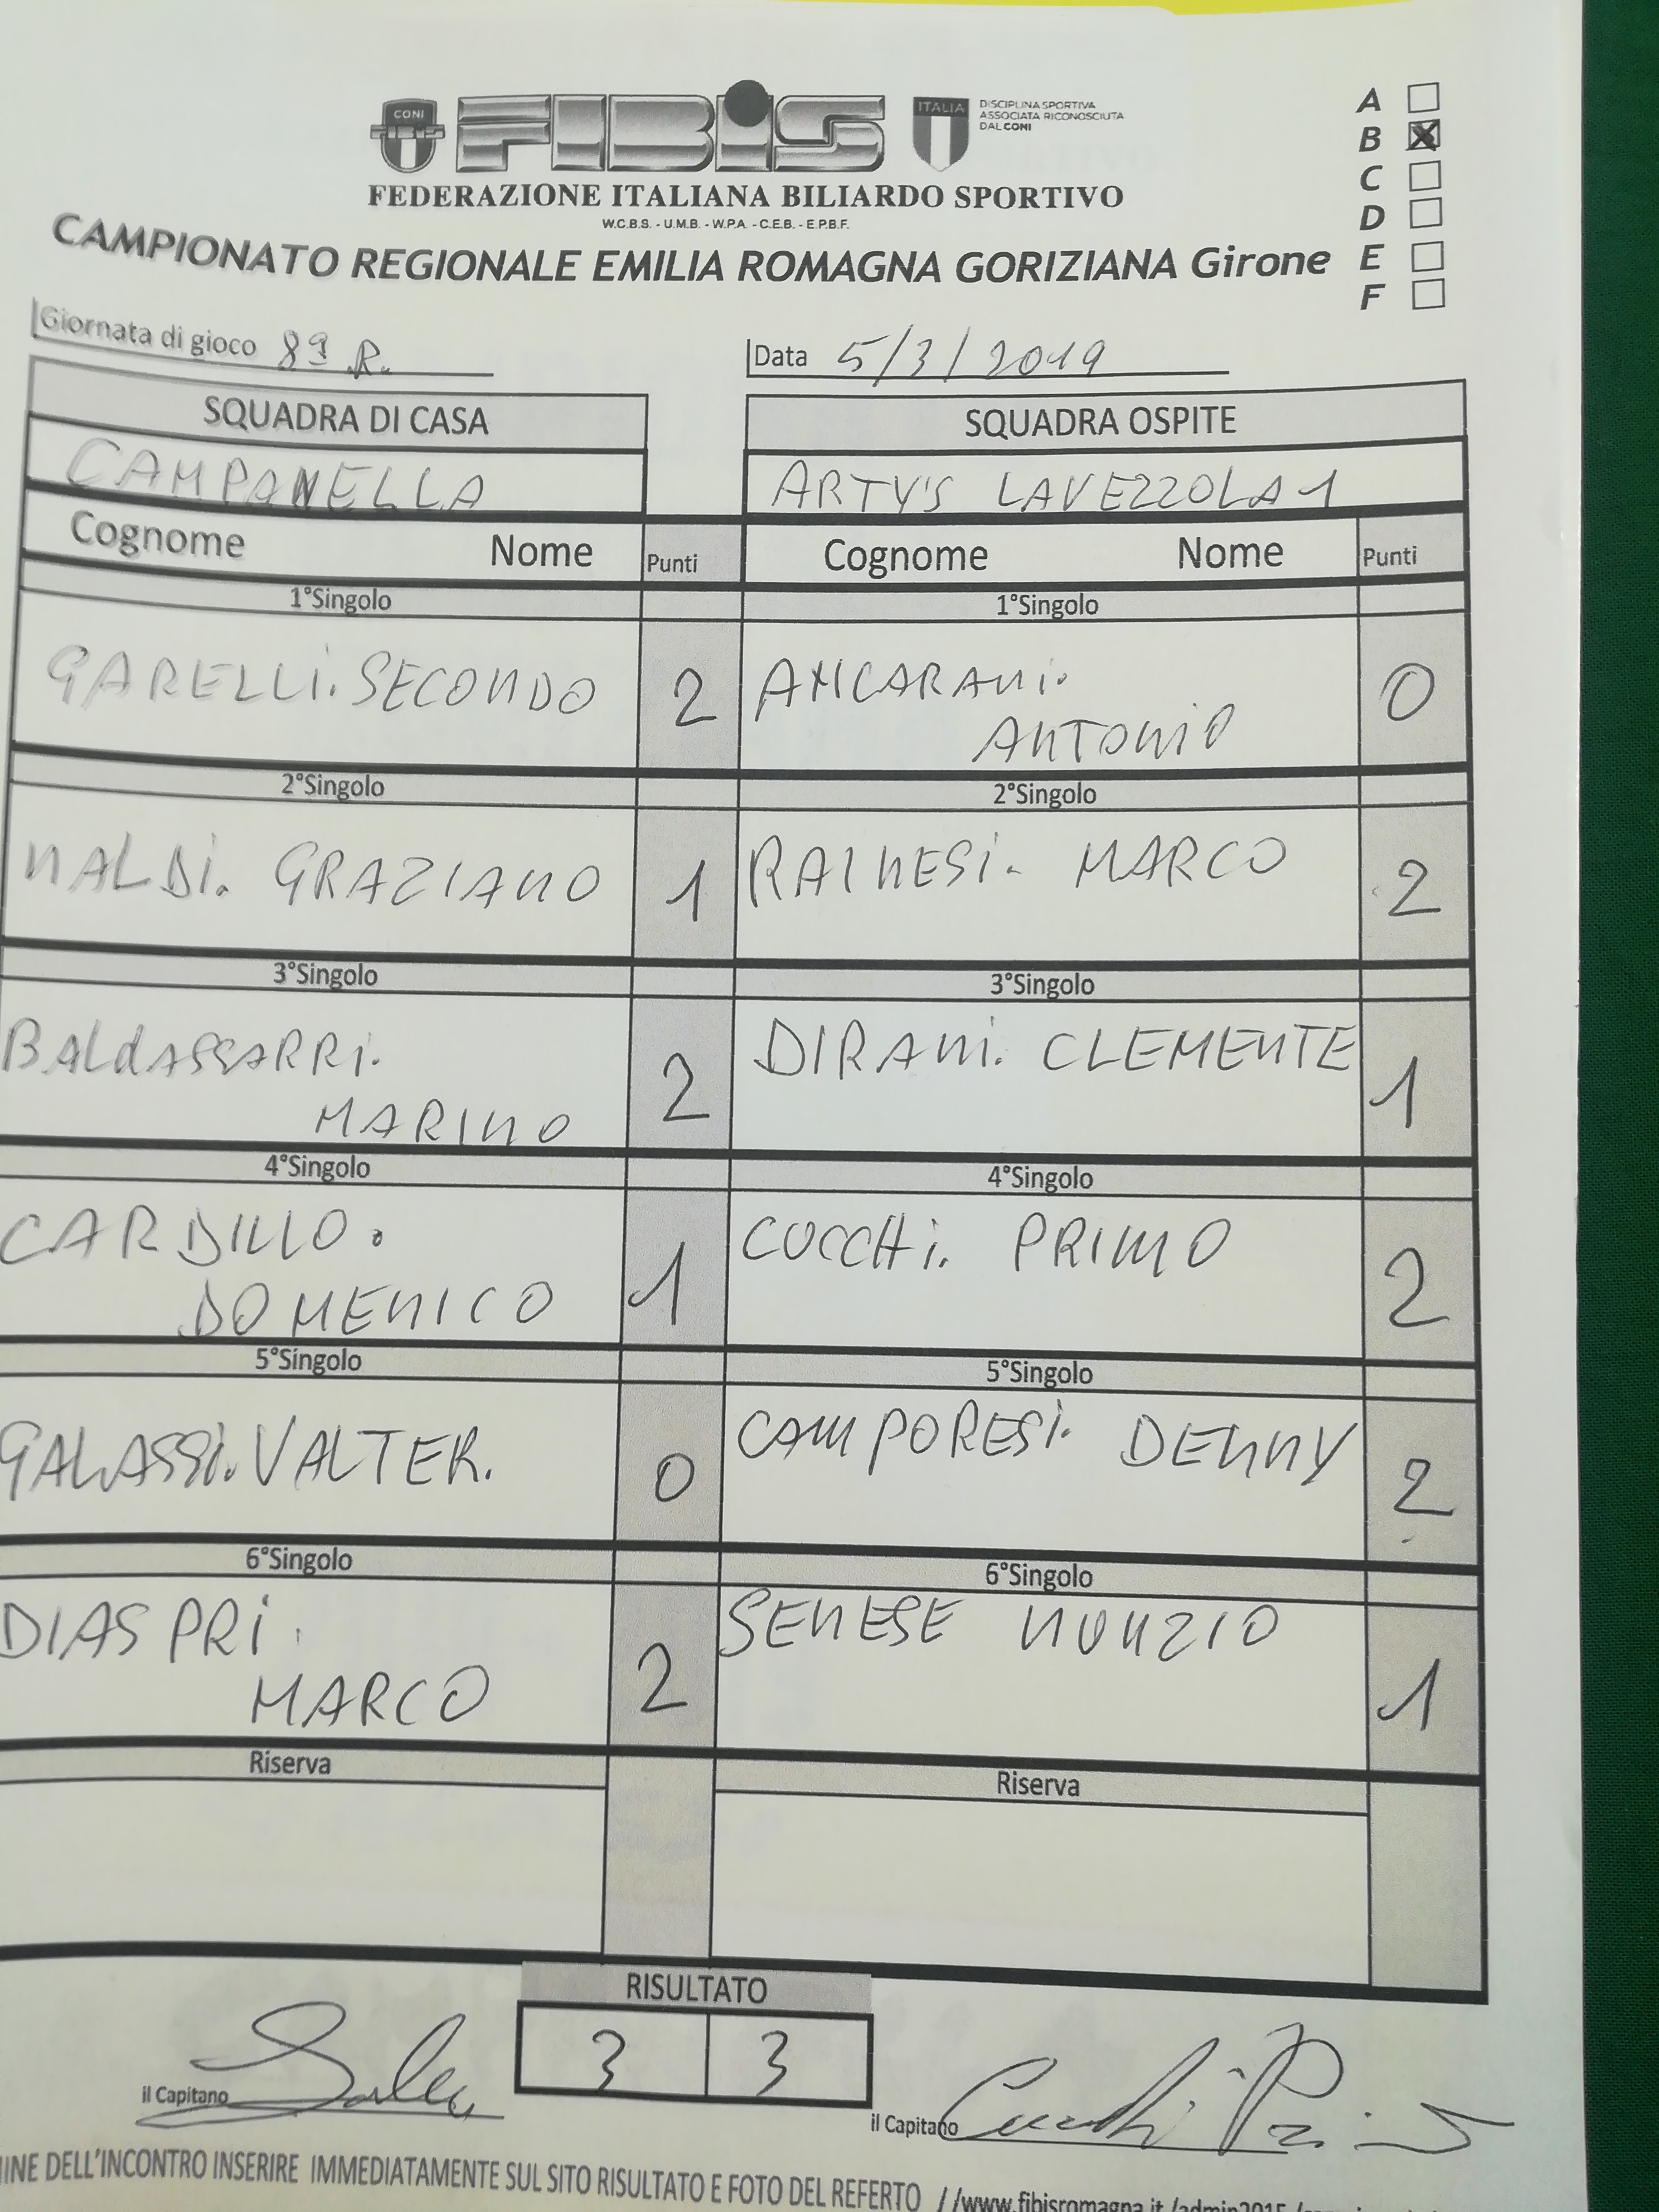 CONI
FIBiS
ITALIA
DISCIPLINA SPORTIVA
ASSOCIATA RICONOSCIUTA
DAL CONI
FEDERAZIONE ITALIANA BILIARDO SPORTIVO
W.C.B.S. - U.M.B. - W.P.A. - C.E.B. - E.P.B.F.
CAMPIONATO REGIONALE EMILIA ROMAGNA GORIZIANA Girone
A
B X
C
D
E
F
Giornata di gioco 8ª R. Data 5/3/2019
SQUADRA DI CASA SQUADRA OSPITE
CAMPANELLA ARTY'S LAVEZZOLA 1
Cognome Nome Punti Cognome Nome Punti
1°Singolo 1°Singolo
GARELLI. SECONDO 2 ANCARANI. 0
ANTONIO
2°Singolo 2°Singolo
NALDI. GRAZIANO 1 RAINESI. MARCO 2
3°Singolo 3°Singolo
BALDASSARRI. 2 DIRANI. CLEMENTE 1
MARINO
4°Singolo 4°Singolo
CARDILLO. 1 CUCCHI. PRIMO 2
DOMENICO
5°Singolo 5°Singolo
GALASSI. VALTER. 0 CAMPORESI. DENNY 2
6°Singolo 6°Singolo
DIASPRI. 2 SENESE NUNZIO 1
MARCO
Riserva Riserva
RISULTATO
3 3
il Capitano il Capitano Cucchi Primo
INE DELL'INCONTRO INSERIRE IMMEDIATAMENTE SUL SITO RISULTATO E FOTO DEL REFERTO //www.fibisromagna.it/admin2015/